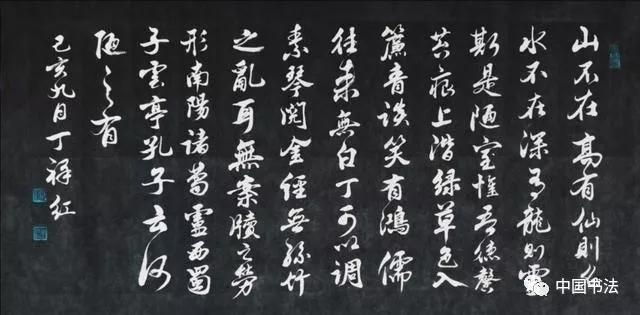 山不在高有仙則名
水不在深有龍則靈
斯是陋室惟吾德馨
苔痕上階綠草色入
簾青談笑有鴻儒
往來無白丁可以調
素琴閱金經無絲竹
之亂耳無案牘之勞
形南陽諸葛廬西蜀
子雲亭孔子云何
陋之有
己亥九月丁祥红
中国书法